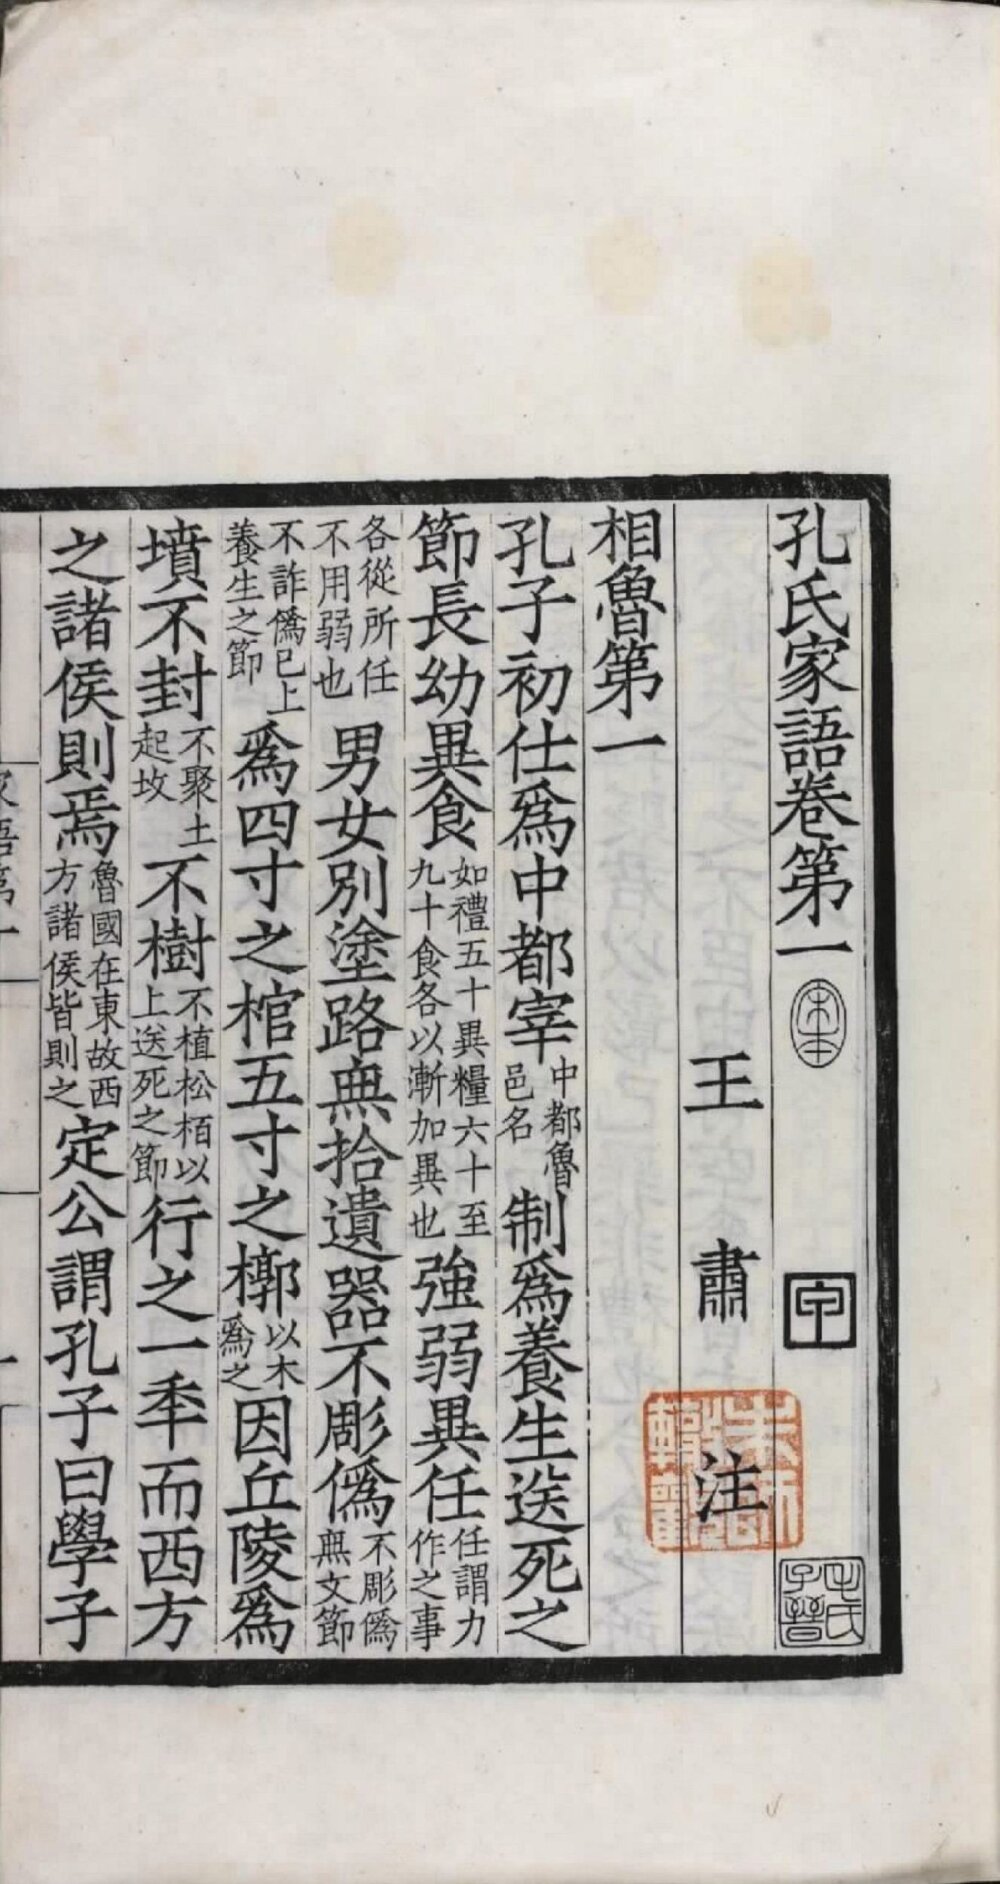 孔氏家語卷第一
王肅注
相魯第一
孔子初仕爲中都宰中都魯邑名制爲養生送死之
節長幼異食如禮五十異糧六十至九十食各以漸加異也強弱異任任謂力作之事
各從所任不用弱也男女別塗路無拾遺器不彫僞不彫僞無文節
不詐僞已上養生之節爲四寸之棺五寸之槨以木爲之因丘陵爲
墳不封不聚土起坟不樹不植松栢以上送死之節行之一年而西方
之諸侯則焉魯國在東故西方諸侯皆則之定公謂孔子曰學子